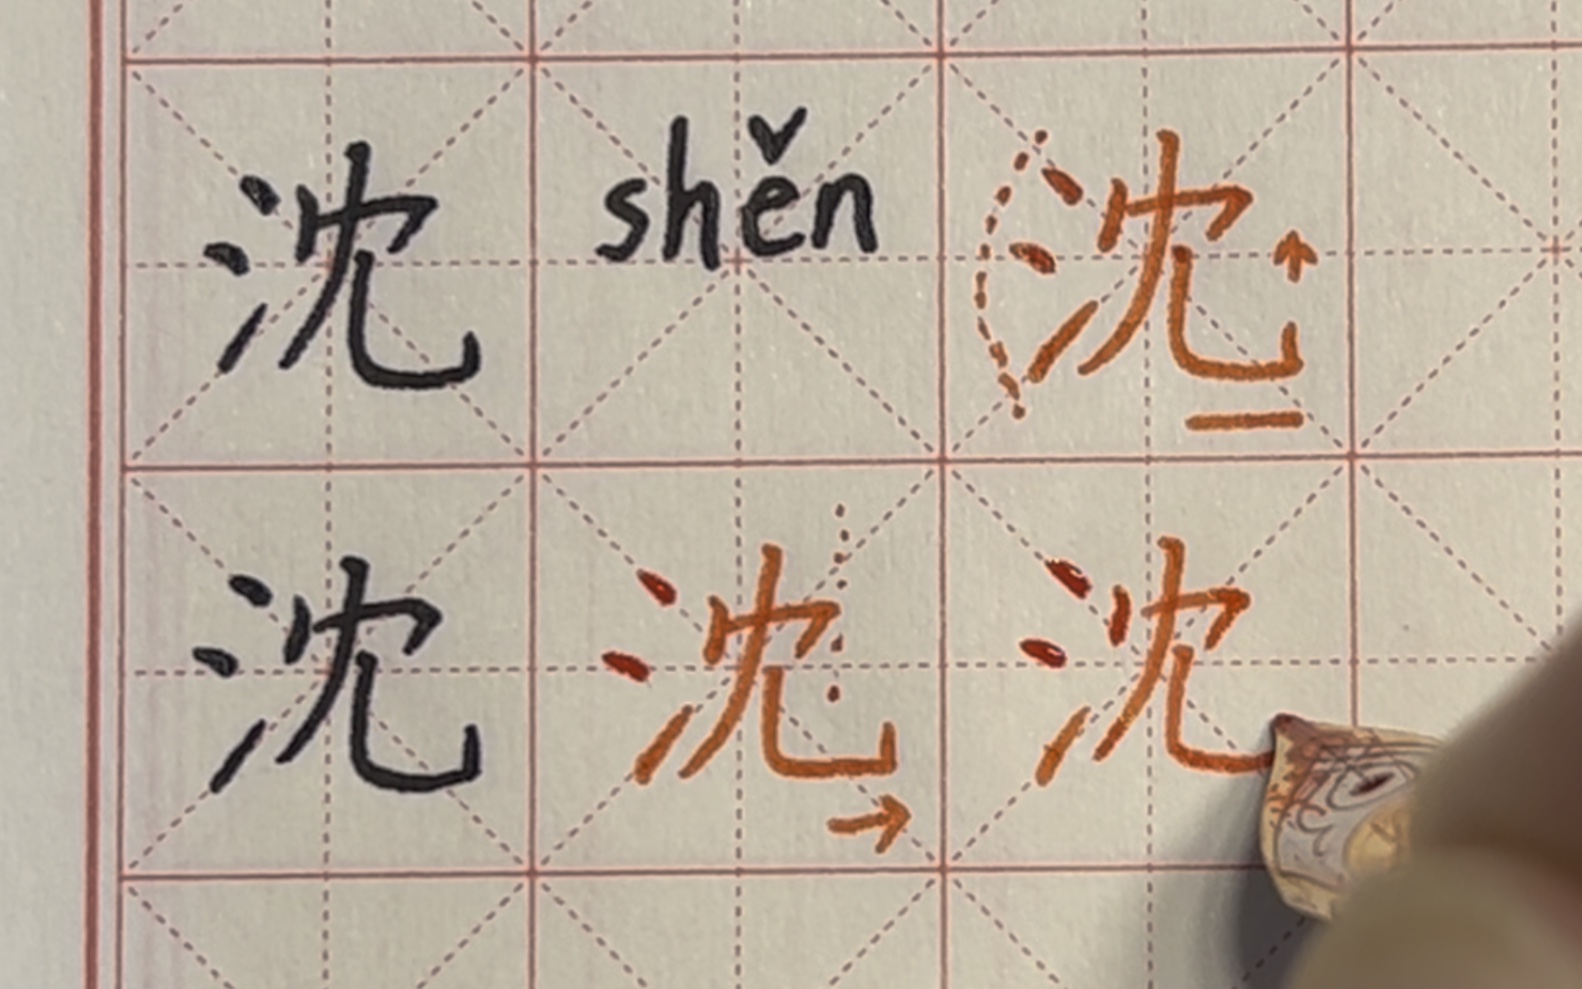 沈 shěn 沈
沈 沈 沈